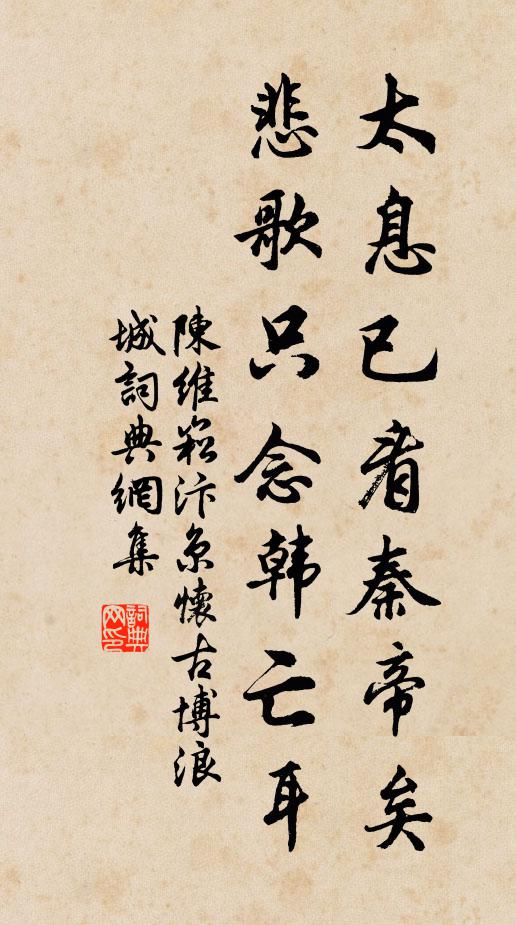 太息已看秦帝矣
悲歌只念韩亡耳
陳維崧汴京懷古博浪
城詞典網集
詞典網印